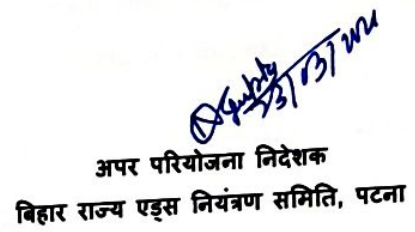 अपर परियोजना निदेशक
बिहार राज्य एड्स नियंत्रण समिति, पटना